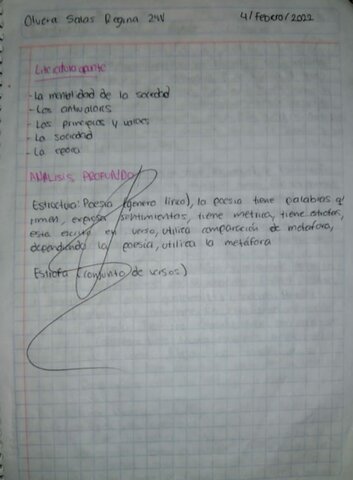 Olvera Salas Regina 24V 4/febrero/2022
Literatura aporte
- La mentalidad de la sociedad
- Los antivalores
- Los principios y valores
- La sociedad
- La época
ANALISIS PROFUNDO
Estructura: Poesía (género lírico), la poesía tiene palabras q'
riman, expresa sentimientos, tiene métrica, tiene
esta escrito en verso, utiliza comparación de metáfora,
dependiendo la poesía, utiliza la metáfora
Estrofa (conjunto de versos)